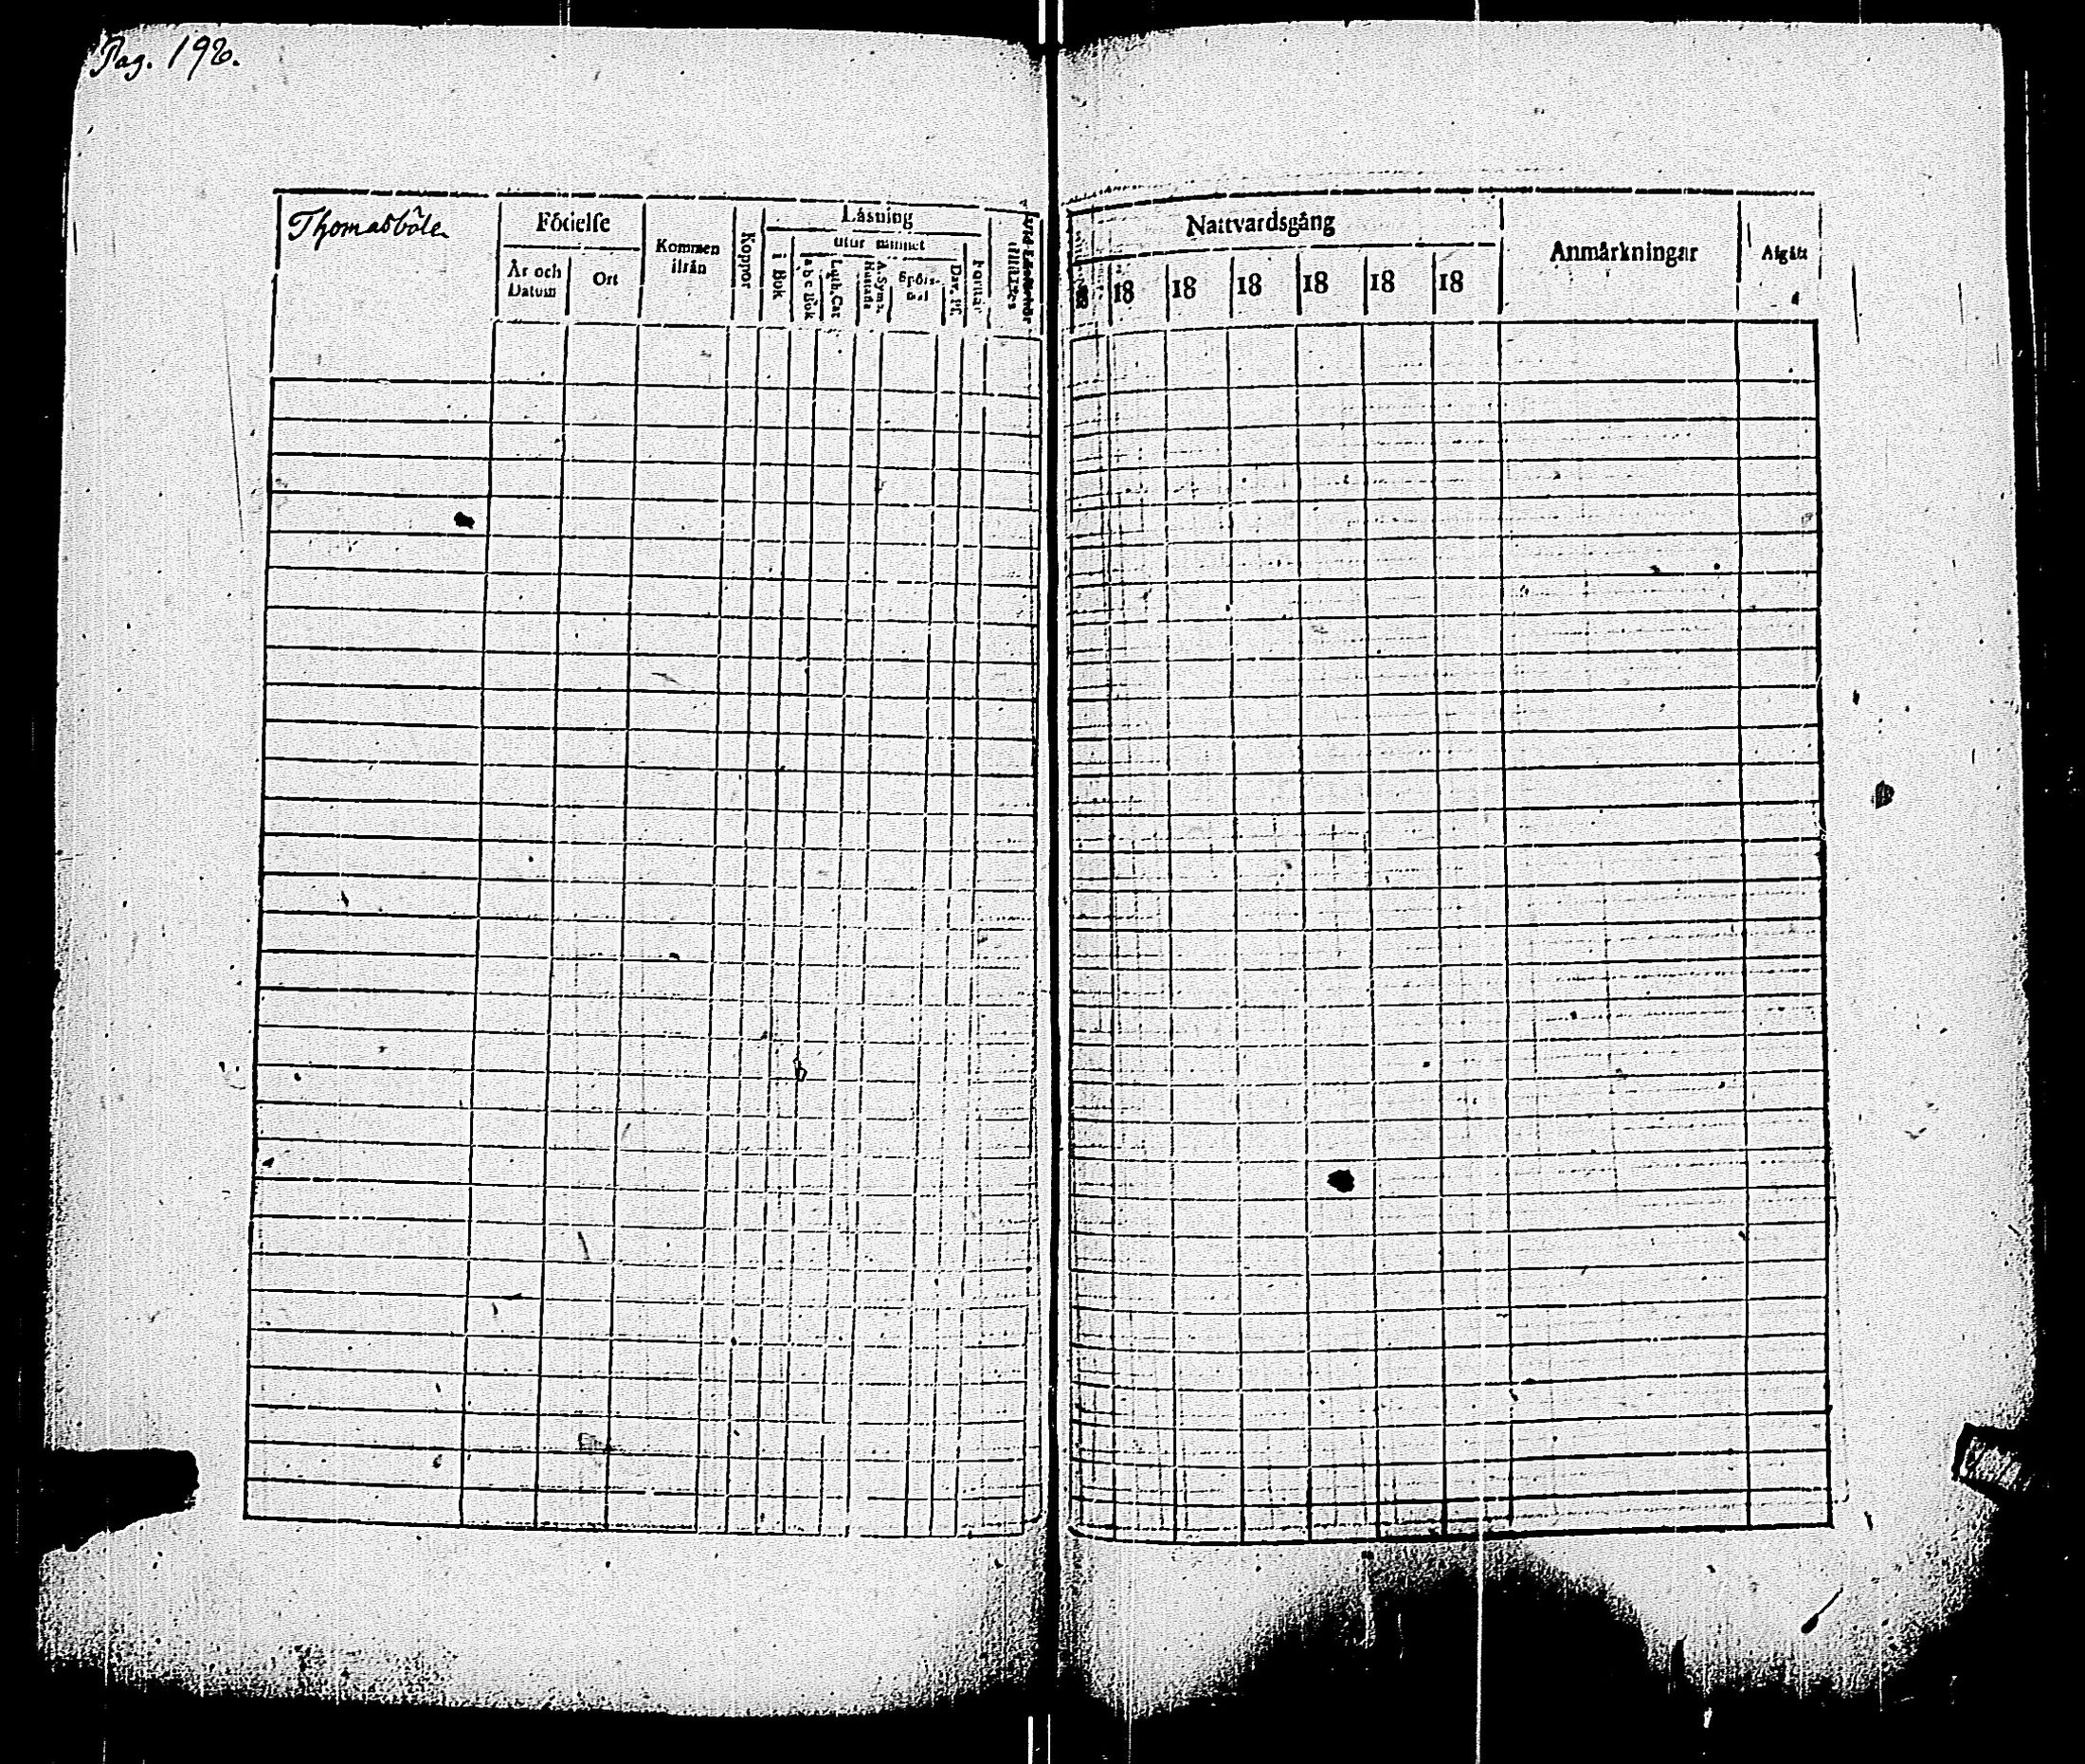 Pag. 198.
Thomasböle
Födelse
År och
Datum
Ort
Kommen
ifrån
Koppor
Läsning
utur minnet
i Bok
a b c Bok
Luth. Cat
A. Symb.
Spörs-
mål
Dav. Ps.
Förstår
Nattvardsgång
18
18
18
18
18
18
Anmärkningar
Afgått